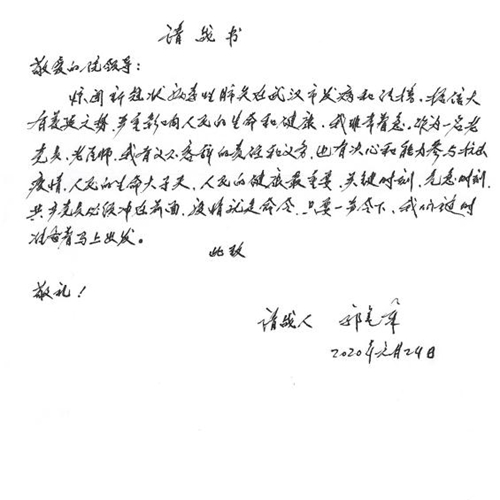 请战书
敬爱的院领导：
惊闻新冠状病毒性肺炎在武汉市发病和传播，据信大
有蔓延之势，严重影响人民的生命和健康，我非常着急，作为一名老
党员、老医师，我有义不容辞的责任和义务，也有决心和能力参与抗击
疫情，人民的生命大于天，人民的健康最重要，关键时刻，危急时刻，
共产党员必须冲在前面，疫情就是命令，只要一声令下，我们随时
准备着马上出发。
此致
敬礼！
请战人
2020年元月24日